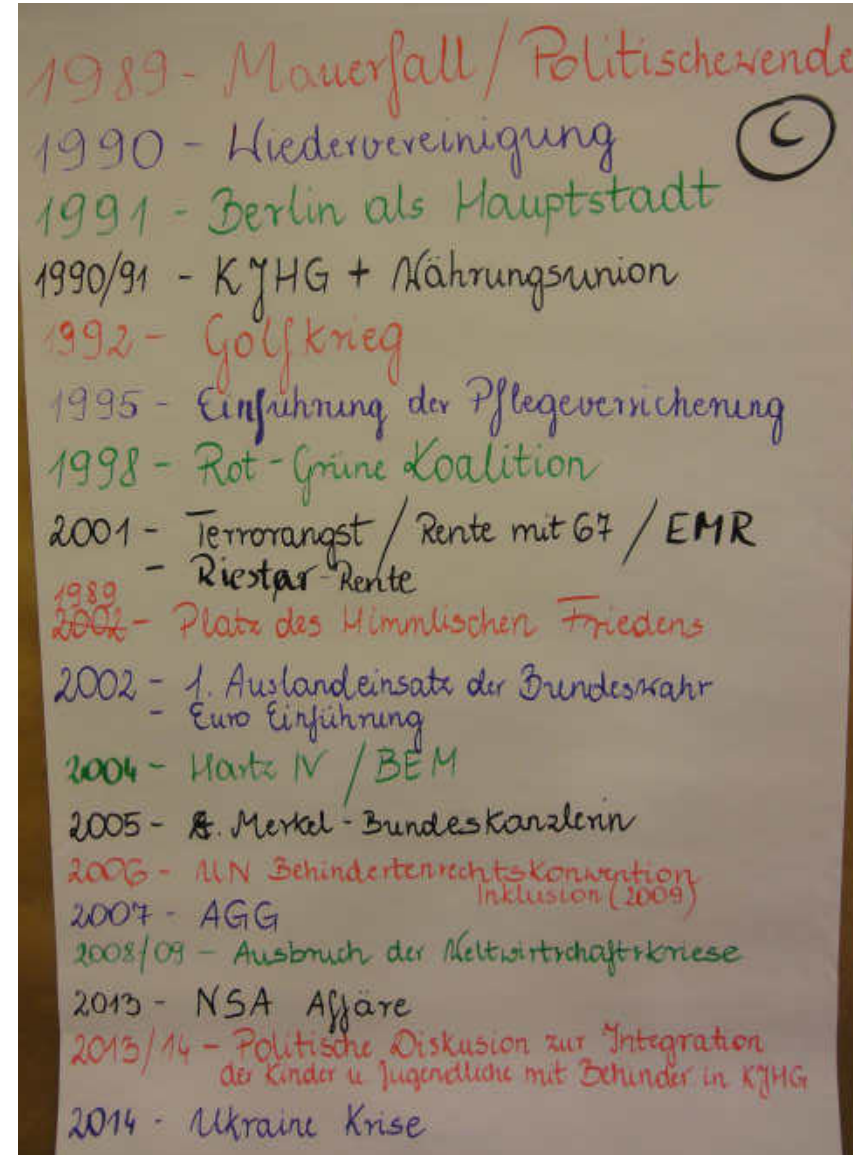 1989 - Mauerfall / Politischewende
C
1990 - Wiedervereinigung
1991 - Berlin als Hauptstadt
1990/91 - KJHG + Währungsunion
1992 - Golfkrieg
1995 - Einfuhrung der Pflegeversicherung
1998 - Rot-Grüne Koalition
2001 - Terrorangst / Rente mit 67 / EMR
- Riestar-Rente
1989
2002 - Platz des Himmlischen Friedens
2002 - 1. Auslandeinsatz der Bundeswahr
- Euro Einführung
2004 - Hartz IV / BEM
2005 - A. Merkel - Bundeskanzlerin
2006 - UN Behindertenrechtskonvention
Inklusion (2009)
2007 - AGG
2008/09 - Ausbruch der Weltwirtschaftskriese
2013 - NSA Affäre
2013/14 - Politische Diskusion zur Integration
der Kinder u Jugendliche mit Behinder in KJHG
2014 - Ukraine Krise